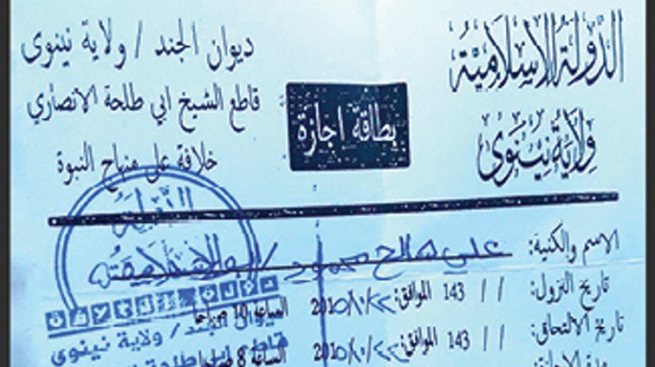 الدولة الإسلامية
ولاية نينوى
بطاقة اجازة
ديوان الجند / ولاية نينوى
قاطع الشيخ ابي طلحة الانصاري
خلافة على منهاج النبوة
الاسم والكنية: علي صالح محمود /
تاريخ النزول: / / 143 الموافق: الساعة 10 صباحا
تاريخ الالتحاق: / / 143 الموافق: الساعة 8
ديوان الجند / ولاية نينوى
قاطع ابي طلحة